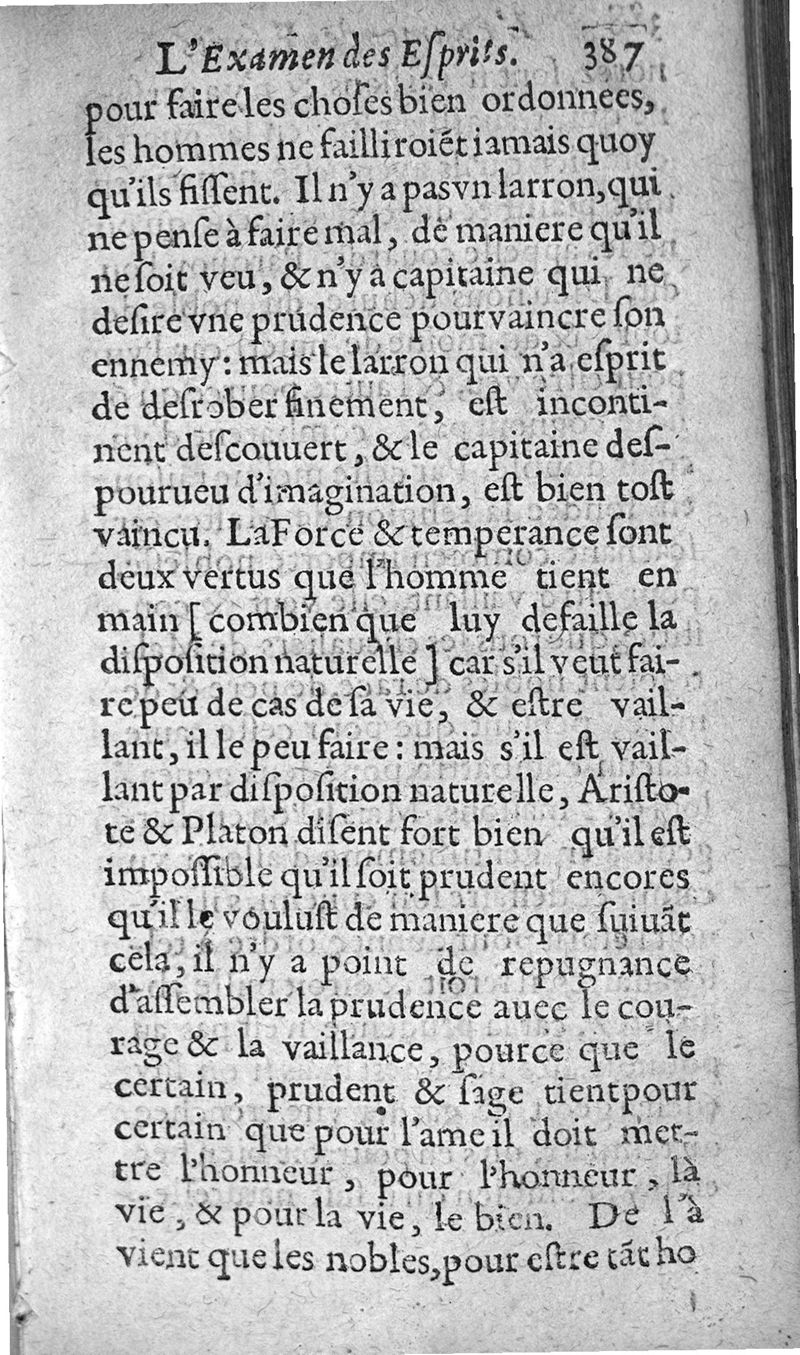 L'Examen des Eſprits. 387
pour faire les choſes bien ordonnees,
les hommes ne failliroiẽt iamais quoy
qu'ils fiſſent. Il n'y a pas vn larron, qui
ne penſe à faire mal, de maniere qu'il
ne ſoit veu, & n'y a capitaine qui ne
deſire vne prudence pour vaincre ſon
ennemy : mais le larron qui n'a eſprit
de deſrober finement, eſt inconti-
nent deſcouuert, & le capitaine deſ-
pourueu d'imagination, eſt bien toſt
vaincu. La Force & temperance ſont
deux vertus que l'homme tient en
main [ combien que luy defaille la
diſpoſition naturelle ] car s'il veut fai-
re peu de cas de ſa vie, & eſtre vail-
lant, il le peu faire : mais s'il eſt vail-
lant par diſpoſition naturelle, Ariſto-
te & Platon diſent fort bien qu'il eſt
impoſſible qu'il ſoit prudent encores
qu'il le vouluſt de maniere que ſuiuãt
cela, il n'y a point de repugnance
d'aſſembler la prudence auec le cou-
rage & la vaillance, pource que le
certain, prudent & ſage tient pour
certain que pour l'ame il doit met-
tre l'honneur, pour l'honneur, là
vie, & pour la vie, le bien. De l'à
vient que les nobles, pour eſtre tãt ho